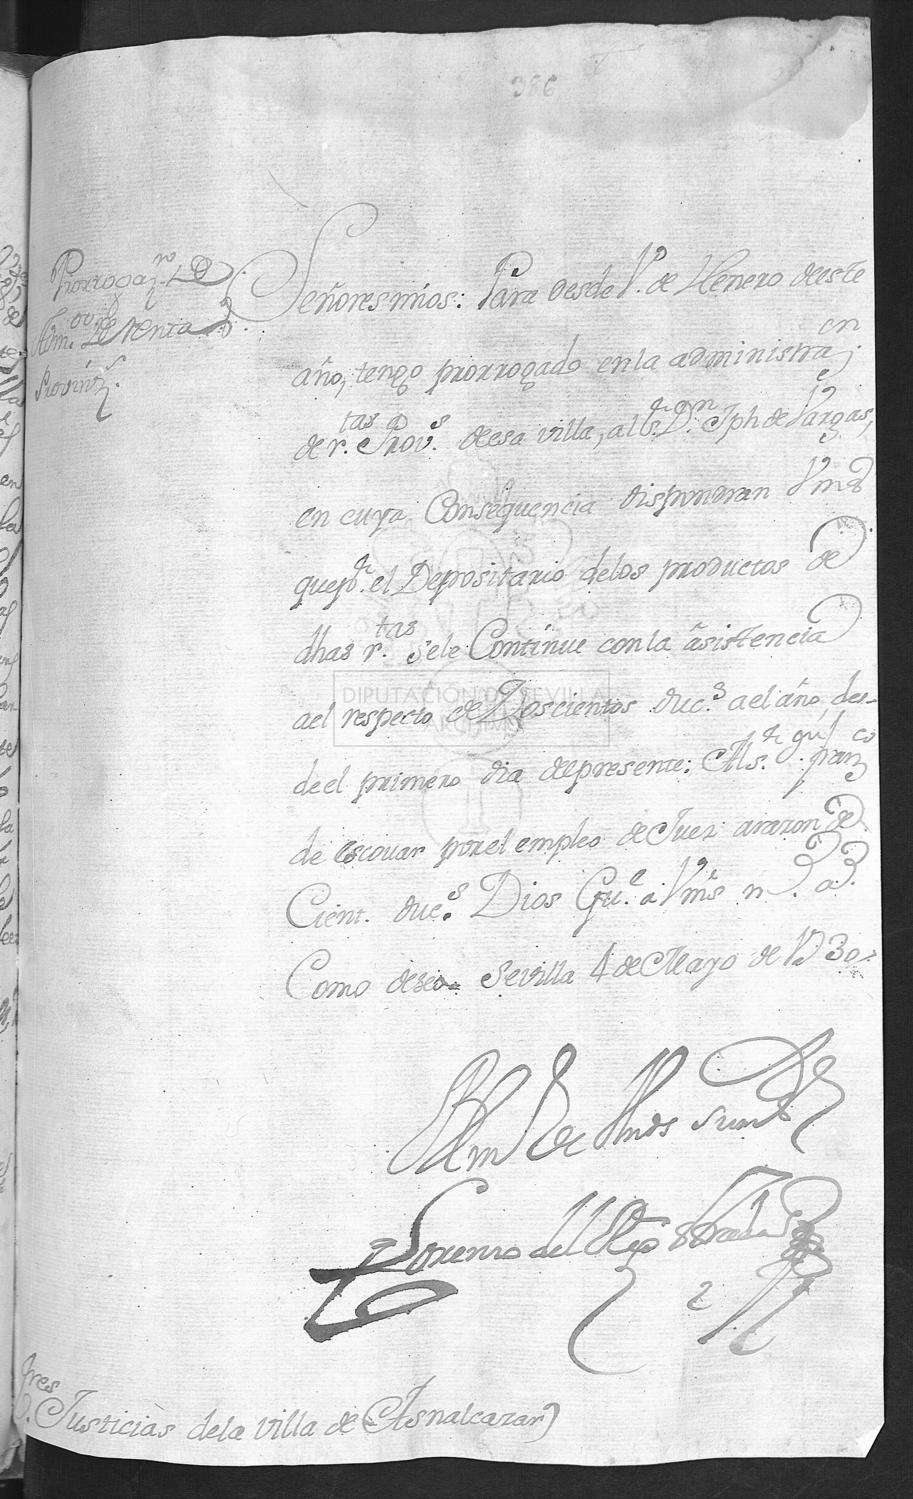 386
Prorrogaz.n de
Adm.or de renta
Provinz.s
Señores mios: Para desde 1.º de Henero deeste
año, tengo prorrogado enla administraz.on
de r.tas Prov.s deesa villa, al s.r D.n Jph de Vargas,
en cuya Consequencia dispondran Vmd
que p.r el Depositario delos productos de
dhas r.tas sele Continue conla asistencia
ael respecto de Doscientos duc.s ael año, des-
de el primero dia delpresente: Al s.r
de escouar porel empleo de Juez arazon de
Cient. duc.s Dios Gu.e a Vms m.s a.s
Como deseo. Sevilla 4 de Mayo de 1730.
BLm de Vmds su m.r
Lorenzo del Rio Estrada
DIPUTACIÓN DE SEVILLA
ARCHIVO
S.res Justicias dela villa de Asnalcazar